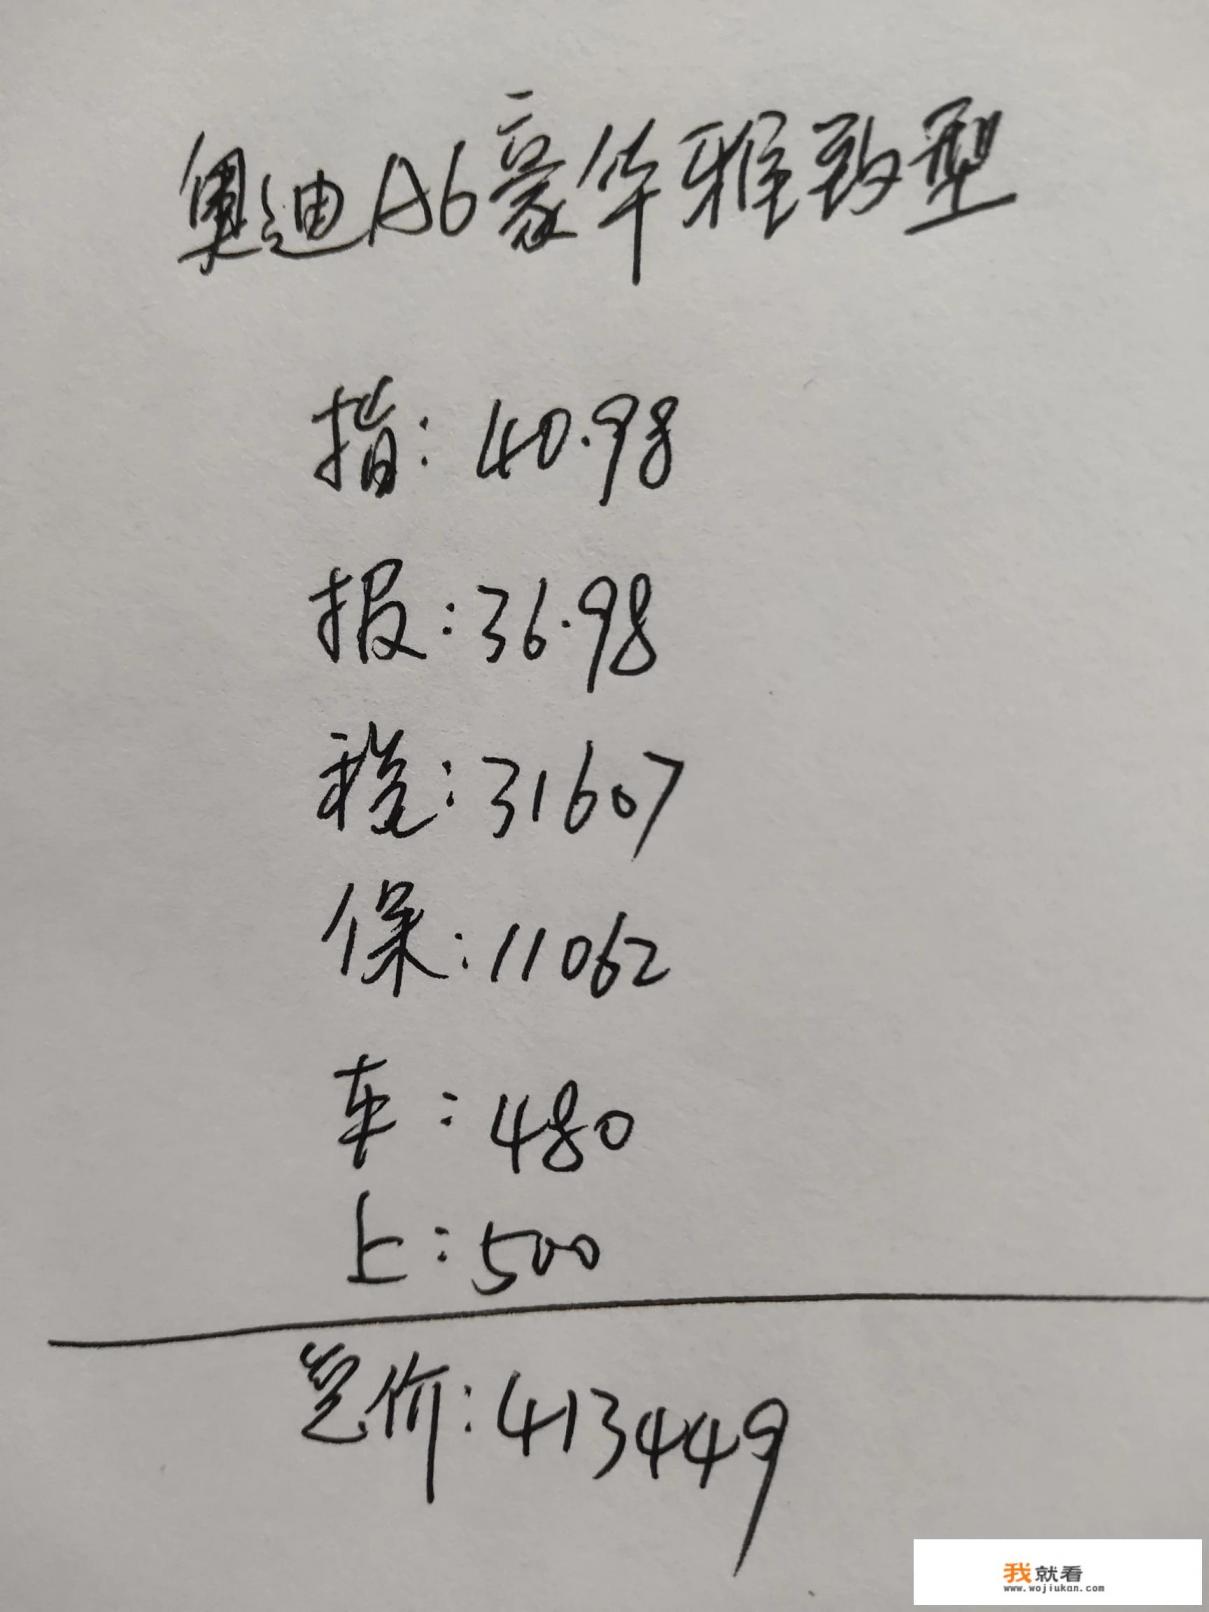 奥迪A6豪华雅致型
指:40.98
报:36.98
税:31607
保:11062
车:480
上:500
总价:413449
我就看
www.wojiukan.com